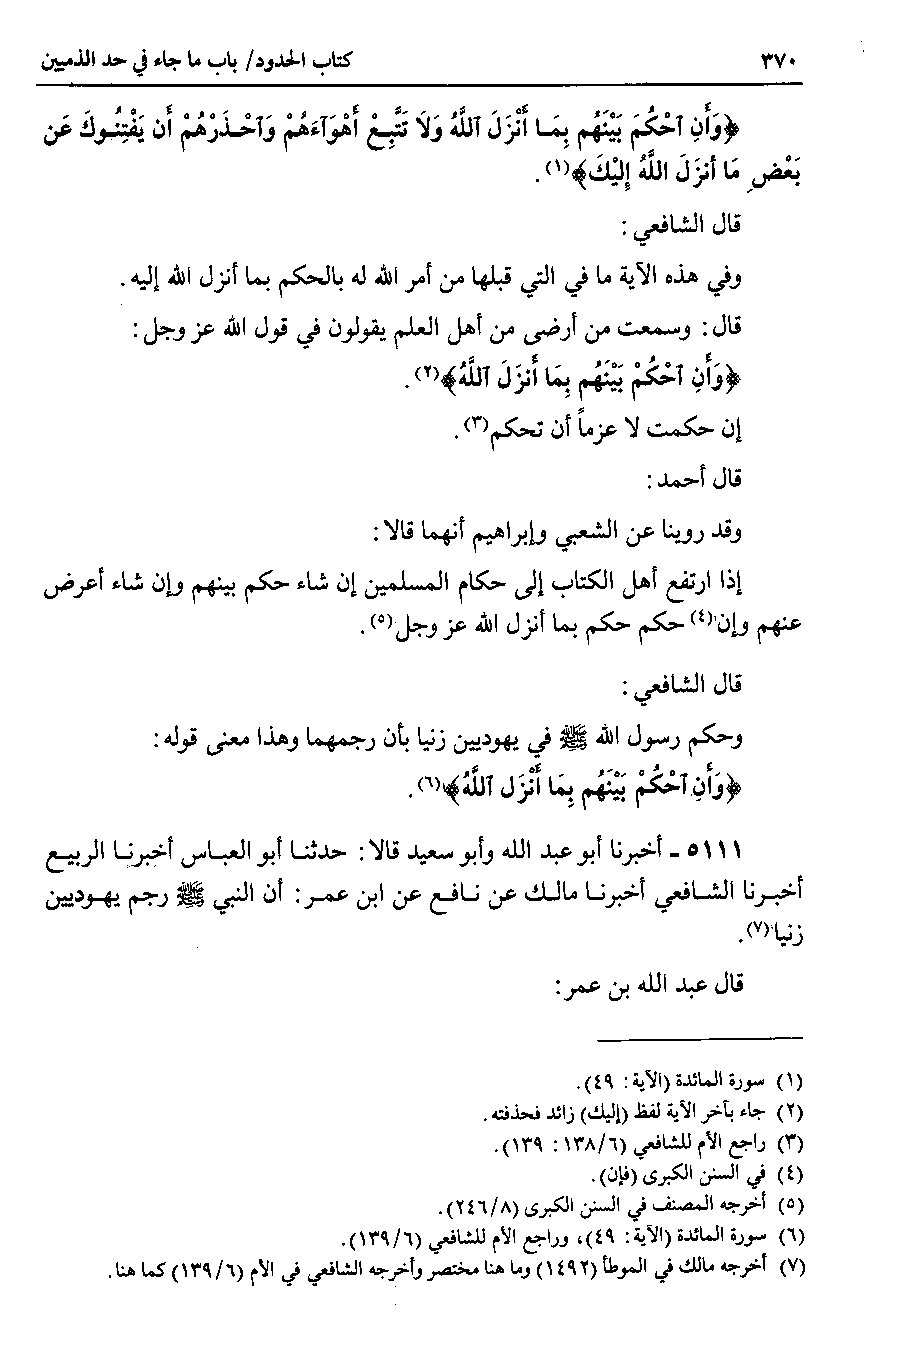 ٣٧٠ كتاب الحدود/ باب ما جاء في حد الذميين
﴿وَأَنِ ٱحْكُمْ بَيْنَهُم بِمَا أَنْزَلَ ٱللَّهُ وَلَا تَتَّبِعْ أَهْوَآءَهُمْ وَٱحْذَرْهُمْ أَن يَفْتِنُوكَ عَن
بَعْضِ مَا أَنزَلَ اللَّهُ إِلَيْكَ﴾(١).
قال الشافعي:
وفي هذه الآية ما في التي قبلها من أمر الله له بالحكم بما أنزل الله إليه.
قال: وسمعت من أرضى من أهل العلم يقولون في قول الله عز وجل:
﴿وَأَنِ ٱحْكُمْ بَيْنَهُم بِمَا أَنزَلَ ٱللَّهُ﴾(٢).
إن حكمت لا عزماً أن تحكم(٣).
قال أحمد:
وقد روينا عن الشعبي وإبراهيم أنهما قالا:
إذا ارتفع أهل الكتاب إلى حكام المسلمين إن شاء حكم بينهم وإن شاء أعرض
عنهم وإن(٤) حكم حكم بما أنزل الله عز وجل(٥).
قال الشافعي:
وحكم رسول الله ﷺ في يهوديين زنيا بأن رجمهما وهذا معنى قوله:
﴿وَأَنِ ٱحْكُمْ بَيْنَهُم بِمَا أَنْزَل ٱللَّهُ﴾(٦).
٥١١١ - أخبرنا أبو عبد الله وأبو سعيد قالا: حدثنا أبو العباس أخبرنا الربيع
أخبرنا الشافعي أخبرنا مالك عن نافع عن ابن عمر: أن النبي ﷺ رجم يهوديين
زنيا(٧).
قال عبد الله بن عمر:
(١) سورة المائدة (الآية: ٤٩).
(٢) جاء بآخر الآية لفظ (إليك) زائد فحذفته.
(٣) راجع الأم للشافعي (١٣٨/٦ : ١٣٩).
(٤) في السنن الكبرى (فإن).
(٥) أخرجه المصنف في السنن الكبرى (٢٤٦/٨).
(٦) سورة المائدة (الآية: ٤٩)، وراجع الأم للشافعي (١٣٩/٦).
(٧) أخرجه مالك في الموطأ (١٤٩٢) وما هنا مختصر وأخرجه الشافعي في الأم (١٣٩/٦) كما هنا.